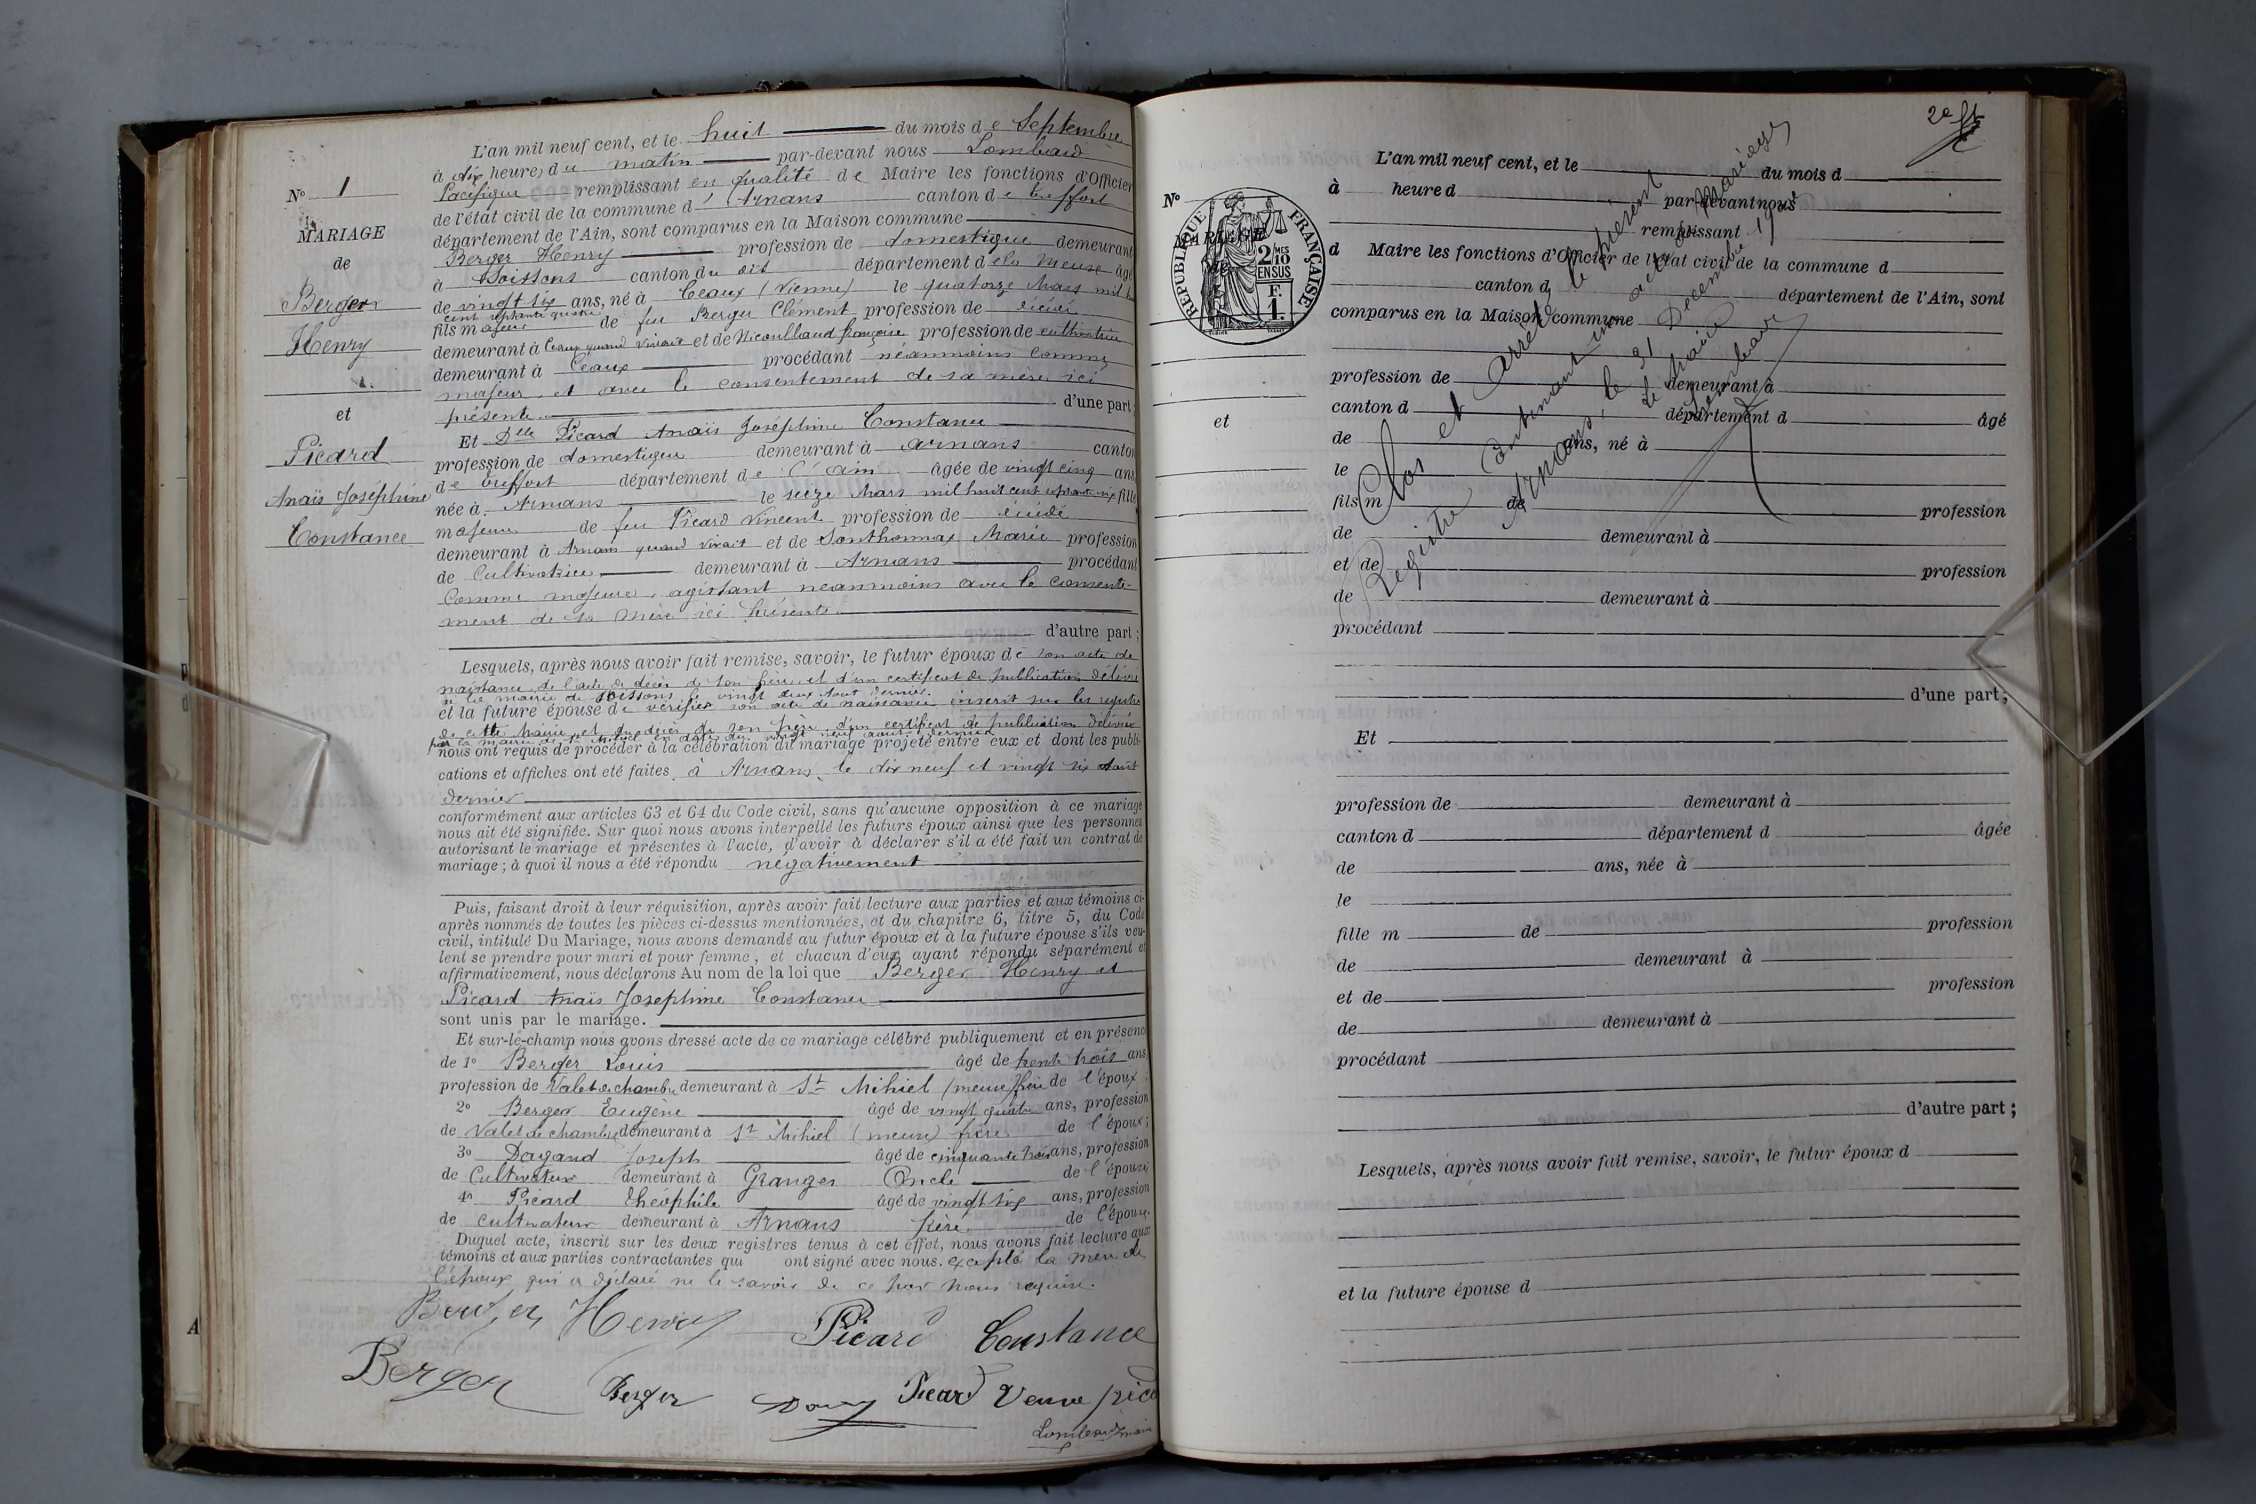 N° 1
MARIAGE
de
Berger
Henry
et
Picard
Anaïs Joséphine
Constance
L'an mil neuf cent, et le huit du mois de Septembre
à dix heures du matin par-devant nous Lombard
Pacifique remplissant en qualité de Maire les fonctions d'Officier
de l'état civil de la commune d'Arnans canton de treffort
département de l'Ain, sont comparus en la Maison commune
Berger Henry profession de domestique demeurant
à Soissons canton du dit département de la Meuse âgé
de vingt six ans, né à Ceaux (Vienne) le quatorze Mars mil huit
cent septante quatre
fils majeur de feu Berger Clément profession de décédé
demeurant à Ceaux quand vivait et de Nicoulleaud françoise profession de cultivatrice
demeurant à Ceaux procédant néanmoins comme
majeur et avec le consentement de sa mère ici
présente d'une part;
Et Dlle Picard Anaïs Joséphine Constance
profession de domestique demeurant à Arnans canton
de treffort département de l'ain âgée de vingt cinq ans
née à Arnans le seize Mars mil huit cent septante fille
majeure de feu Picard Vincent profession de décédé
demeurant à Arnans quand vivait et de Sonthonnax Marie profession
de Cultivatrice demeurant à Arnans procédant
Comme majeure, agissant néanmoins avec le consente-
ment de sa Mère ici présente.
d'autre part;
Lesquels, après nous avoir fait remise, savoir, le futur époux de son acte de
naissance, de l'acte de décès de son père, et d'un certificat de publication délivré
la mairie de Soissons le vingt deux Aout dernier.
et la future épouse de vérifier son acte de naissance inscrit sur les registres
de cette Mairie et du décès de son père d'un certificat de publication délivré
par la mairie de St Mihiel en date du vingt neuf aout dernier
nous ont requis de procéder à la célébration du mariage projeté entre eux et dont les publi-
cations et affiches ont été faites à Arnans, le dix neuf et vingt six Aout
dernier
conformément aux articles 63 et 64 du Code civil, sans qu'aucune opposition à ce mariage
nous ait été signifiée. Sur quoi nous avons interpellé les futurs époux ainsi que les personnes
autorisant le mariage et présentes à l'acte, d'avoir à déclarer s'il a été fait un contrat de
mariage; à quoi il nous a été répondu négativement
Puis, faisant droit à leur réquisition, après avoir fait lecture aux parties et aux témoins ci-
après nommés de toutes les pièces ci-dessus mentionnées, et du chapitre 6, titre 5, du Code
civil, intitulé Du Mariage, nous avons demandé au futur époux et à la future épouse s'ils veu-
lent se prendre pour mari et pour femme, et chacun d'eux ayant répondu séparément et
affirmativement, nous déclarons Au nom de la loi que Berger Henry et
Picard Anaïs Josephine Constance
sont unis par le mariage.
Et sur-le-champ nous avons dressé acte de ce mariage célébré publiquement et en présence
de 1° Berger Louis âgé de trente trois ans
profession de Valet de chambre demeurant à St Mihiel (meuse) frère de l'époux
2° Berger Eugène âgé de vingt quatre ans, profession
de Valet de chambre demeurant à St Mihiel (meuse) frère de l'époux;
3° Dagand Joseph âgé de cinquante trois ans, profession
de Cultivateur demeurant à Granges Oncle de l'épouse
4° Picard théophile âgé de vingt six ans, profession
de cultivateur demeurant à Arnans frère de l'épouse.
Duquel acte, inscrit sur les deux registres tenus à cet effet, nous avons fait lecture aux
témoins et aux parties contractantes qui ont signé avec nous. excepté la mère de
l'époux qui a déclaré ne le savoir de ce par nous requise.
Berger Henry Picard Constance
Berger Berger Picard Veuve
Lombard maire
2e ft
N°
MARIAGE
de
et
RÉPUBLIQUE FRANÇAISE
2/10 MES
EN SUS
F.
1.
L'an mil neuf cent, et le du mois d
à heure d par devant nous
remplissant
d Maire les fonctions d'Officier de l'état civil de la commune d
canton d département de l'Ain, sont
comparus en la Maison commune
profession de demeurant à
canton d département d âgé
de ans, né à
le
fils m de profession
de demeurant à
et de profession
de demeurant à
procédant
d'une part;
Et
profession de demeurant à
canton d département d âgée
de ans, née à
le
fille m de profession
de demeurant à
et de profession
de demeurant à
procédant
d'autre part;
Lesquels, après nous avoir fait remise, savoir, le futur époux d
et la future épouse d
Clos et arrêté le présent
Registre Contenant un acte de Mariage
Arnans, le 31 Décembre 19
Le Maire
Lombard
A